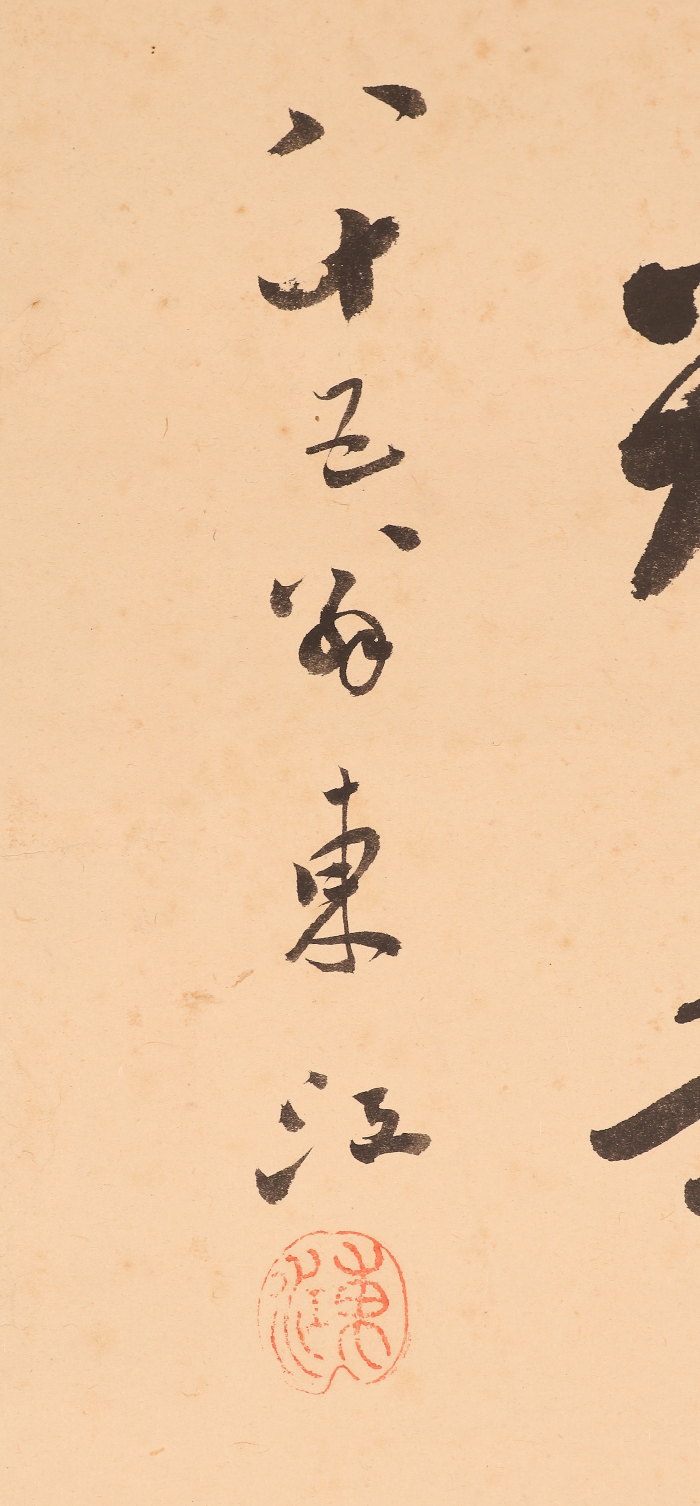 八十五翁東江
東江